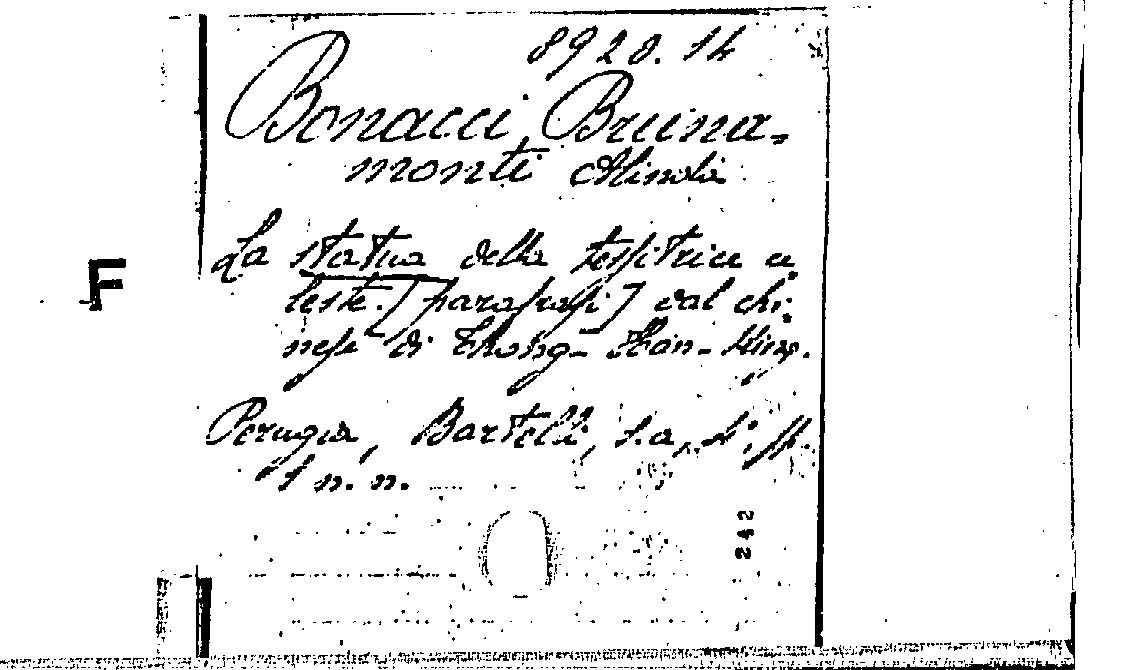 8920.14
Bonacci Bruna-
monti Alinda
La statua della tessitrice ce
leste. [parafrasi] dal chi-
nese di Thong-Han-King.
F
Perugia, Bartelli, s.a., 4°, ff.
1 n. n.
242